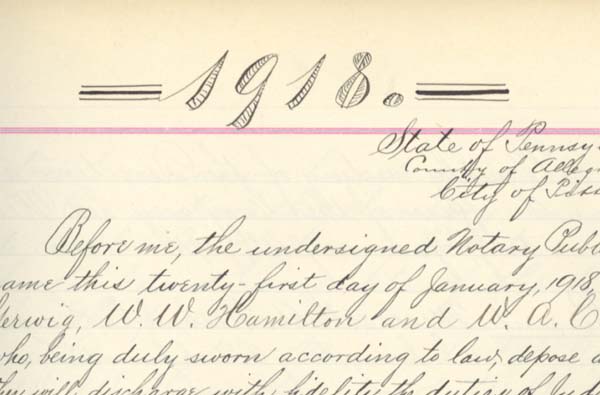 1918.
State of Pennsy
County of Alleg
City of Pi
Before me, the undersigned Notary Publ
ame this twenty-first day of January, 1918,
erwig, W. W. Hamilton and W. A. C
ho, being duly sworn according to law, depose a
they will discharge with fidelity the duties of Jud